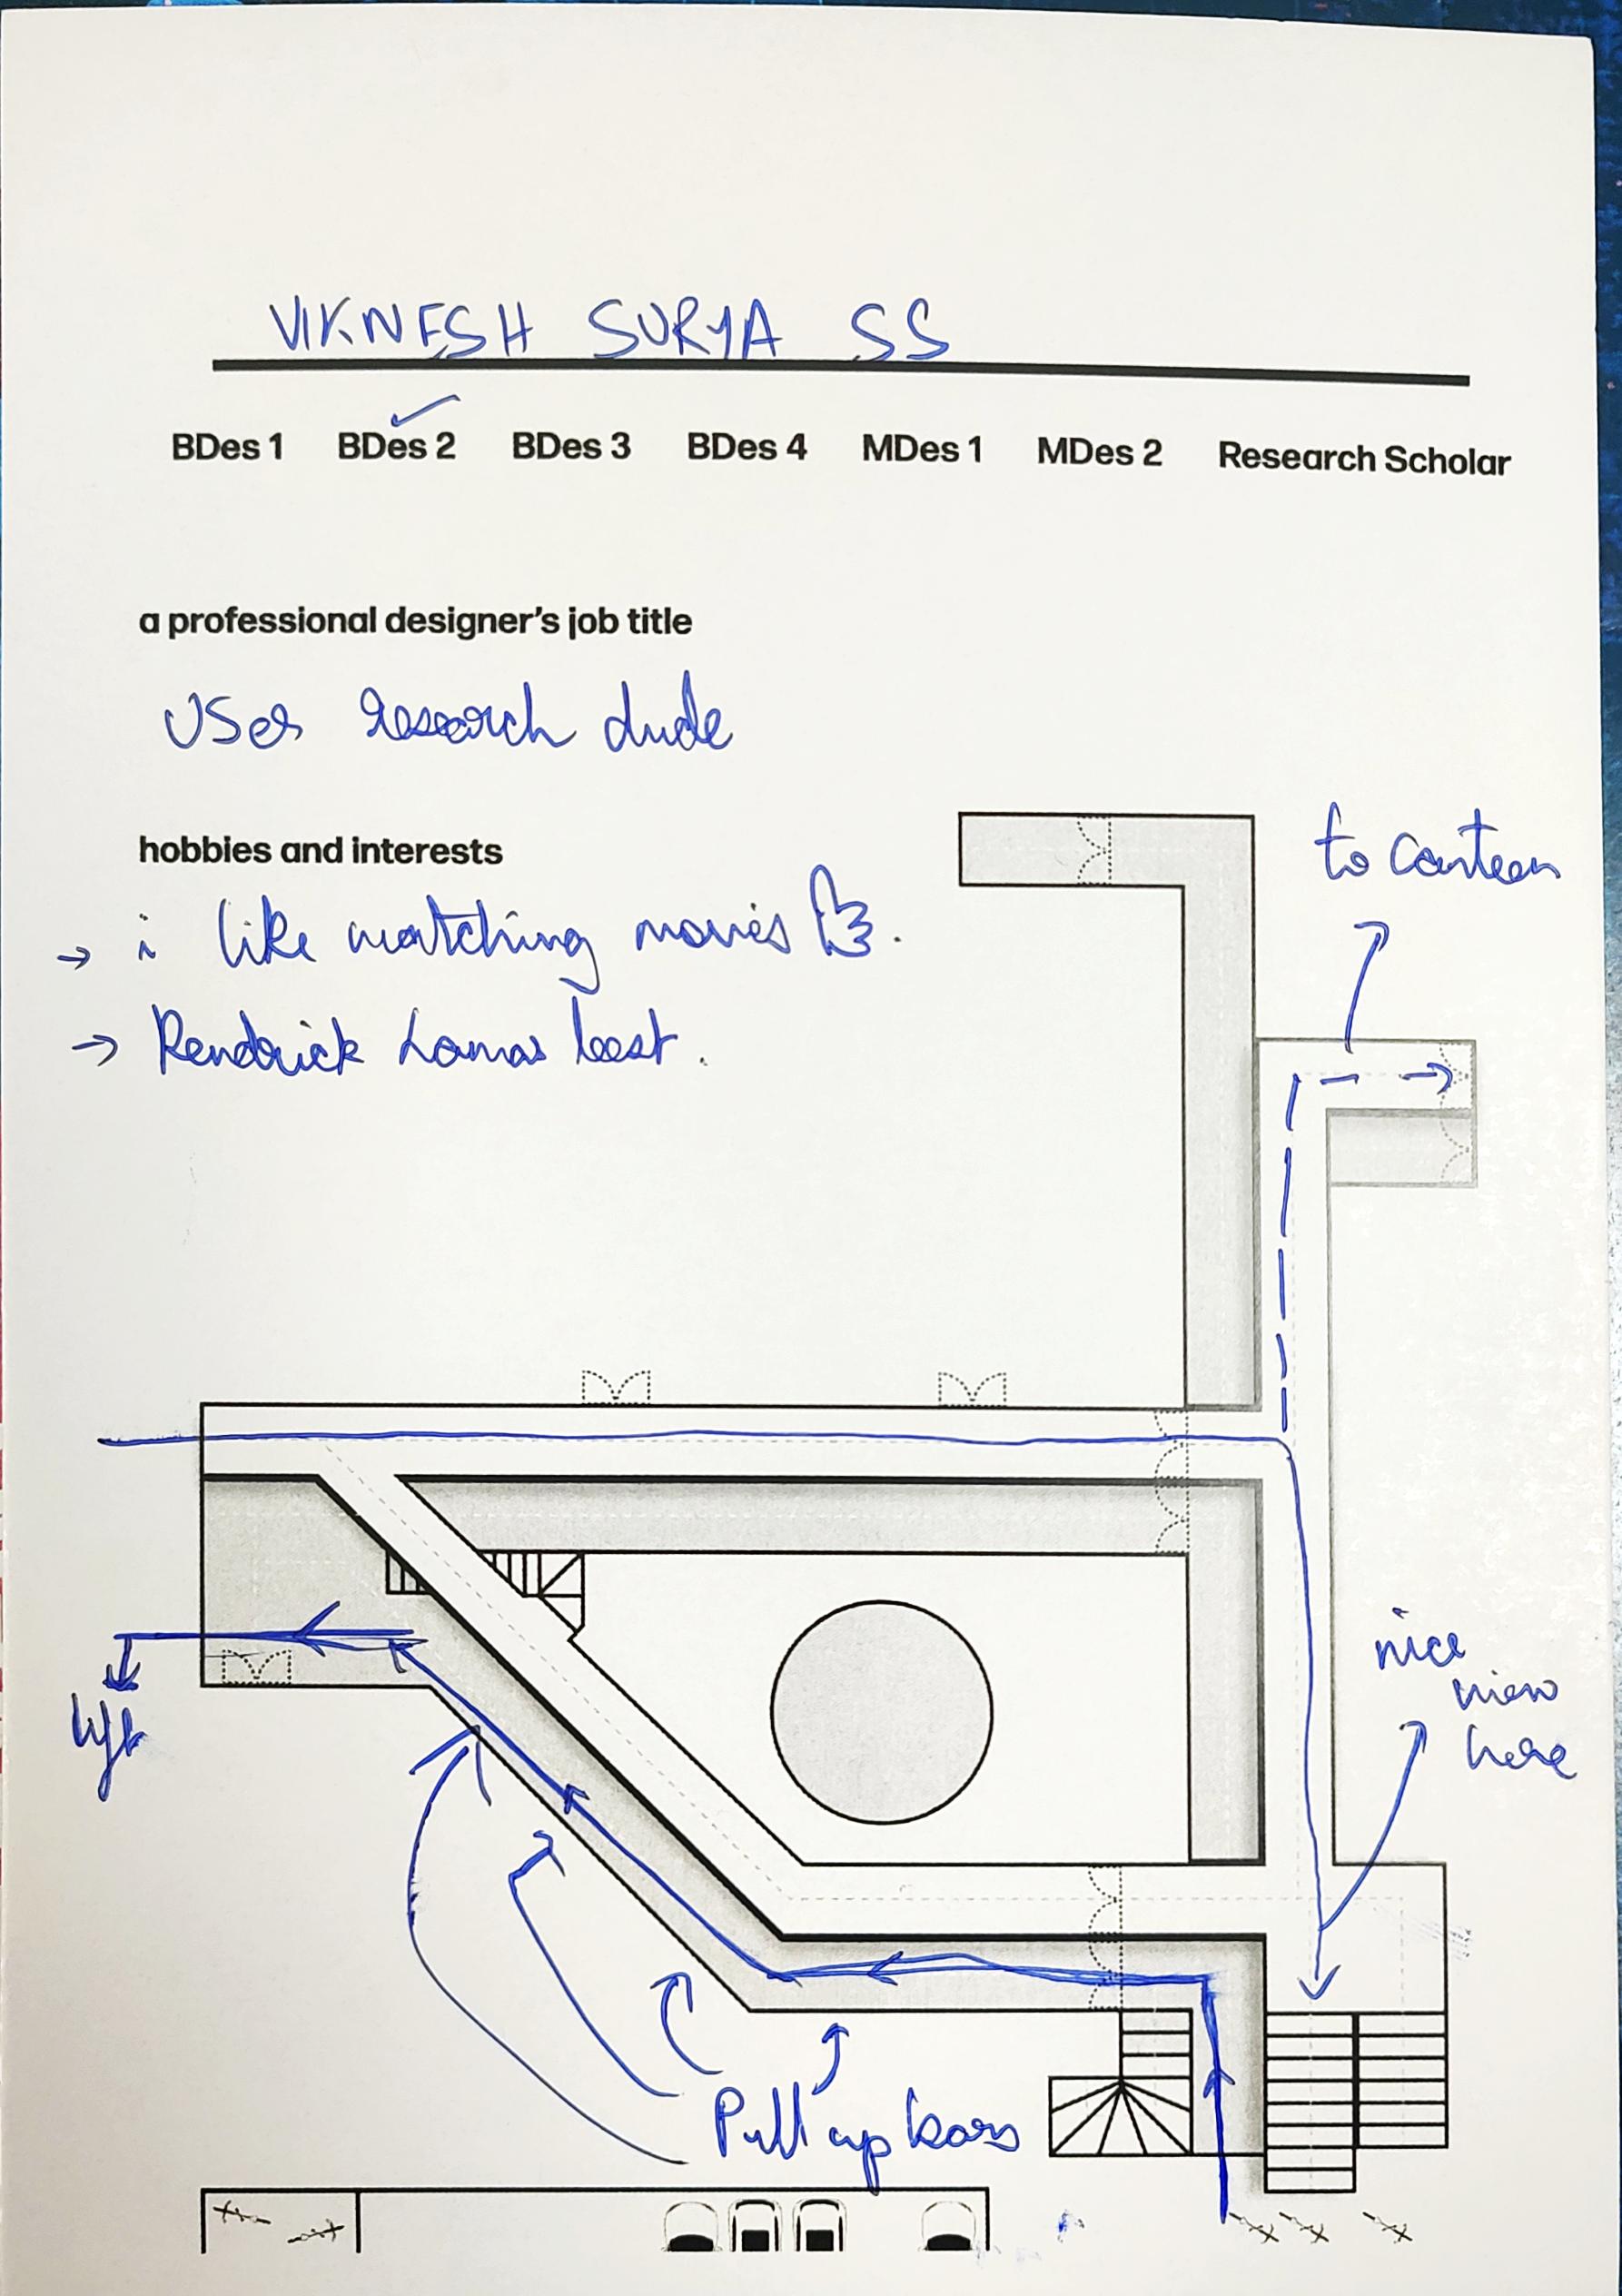 VIKNESH SURYA SS
BDes 1 BDes 2 BDes 3 BDes 4 MDes 1 MDes 2 Research Scholar
a professional designer's job title
User research dude
hobbies and interests
→ i like watching movies
→ Kendrick Lamar best.
to canteen
nice
view
here
lift
Pull up bars